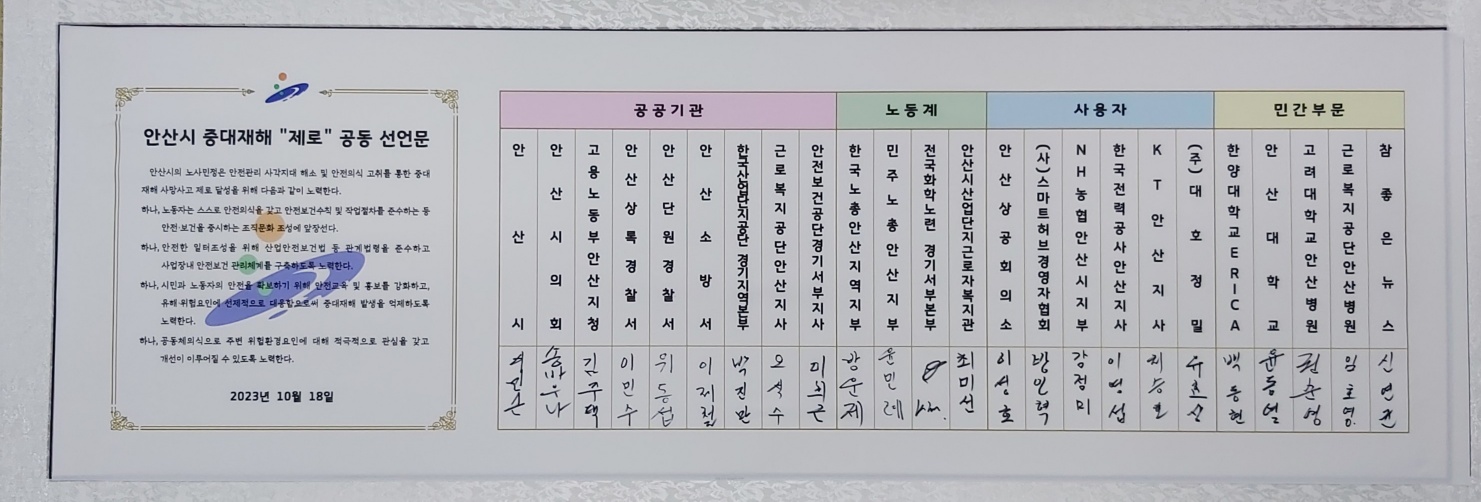 안산시 중대재해 "제로" 공동 선언문
안산시의 노사민정은 안전관리 사각지대 해소 및 안전의식 고취를 통한 중대
재해 사망사고 제로 달성을 위해 다음과 같이 노력한다.
하나, 노동자는 스스로 안전의식을 갖고 안전보건수칙 및 작업절차를 준수하는 등
안전·보건을 중시하는 조직문화 조성에 앞장선다.
하나, 안전한 일터조성을 위해 산업안전보건법 등 관계법령을 준수하고
사업장내 안전보건 관리체계를 구축하도록 노력한다.
하나, 시민과 노동자의 안전을 확보하기 위해 안전교육 및 홍보를 강화하고,
유해·위험요인에 선제적으로 대응함으로써 중대재해 발생을 억제하도록
노력한다.
하나, 공동체의식으로 주변 위험환경요인에 대해 적극적으로 관심을 갖고
개선이 이루어질 수 있도록 노력한다.
2023년 10월 18일
공공기관
노동계
사용자
민간부문
안산시
안산시의회
고용노동부안산지청
안산상록경찰서
안산단원경찰서
안산소방서
한국산업단지공단 경기지역본부
근로복지공단안산지사
안전보건공단경기서부지사
한국노총안산지역지부
민주노총안산지부
전국화학노련 경기서부본부
안산시산업단지근로자복지관
안산상공회의소
(사)스마트허브경영자협회
NH농협안산시지부
한국전력공사안산지사
KT안산지사
(주)대호정밀
한양대학교ERICA
안산대학교
고려대학교안산병원
근로복지공단안산병원
참좋은뉴스
송바우나
김주택
이민수
위동섭
이제철
박진만
오석수
윤민례
최미선
이성호
방인혁
강정미
이명섭
백동현
윤동열
권순영
임호영